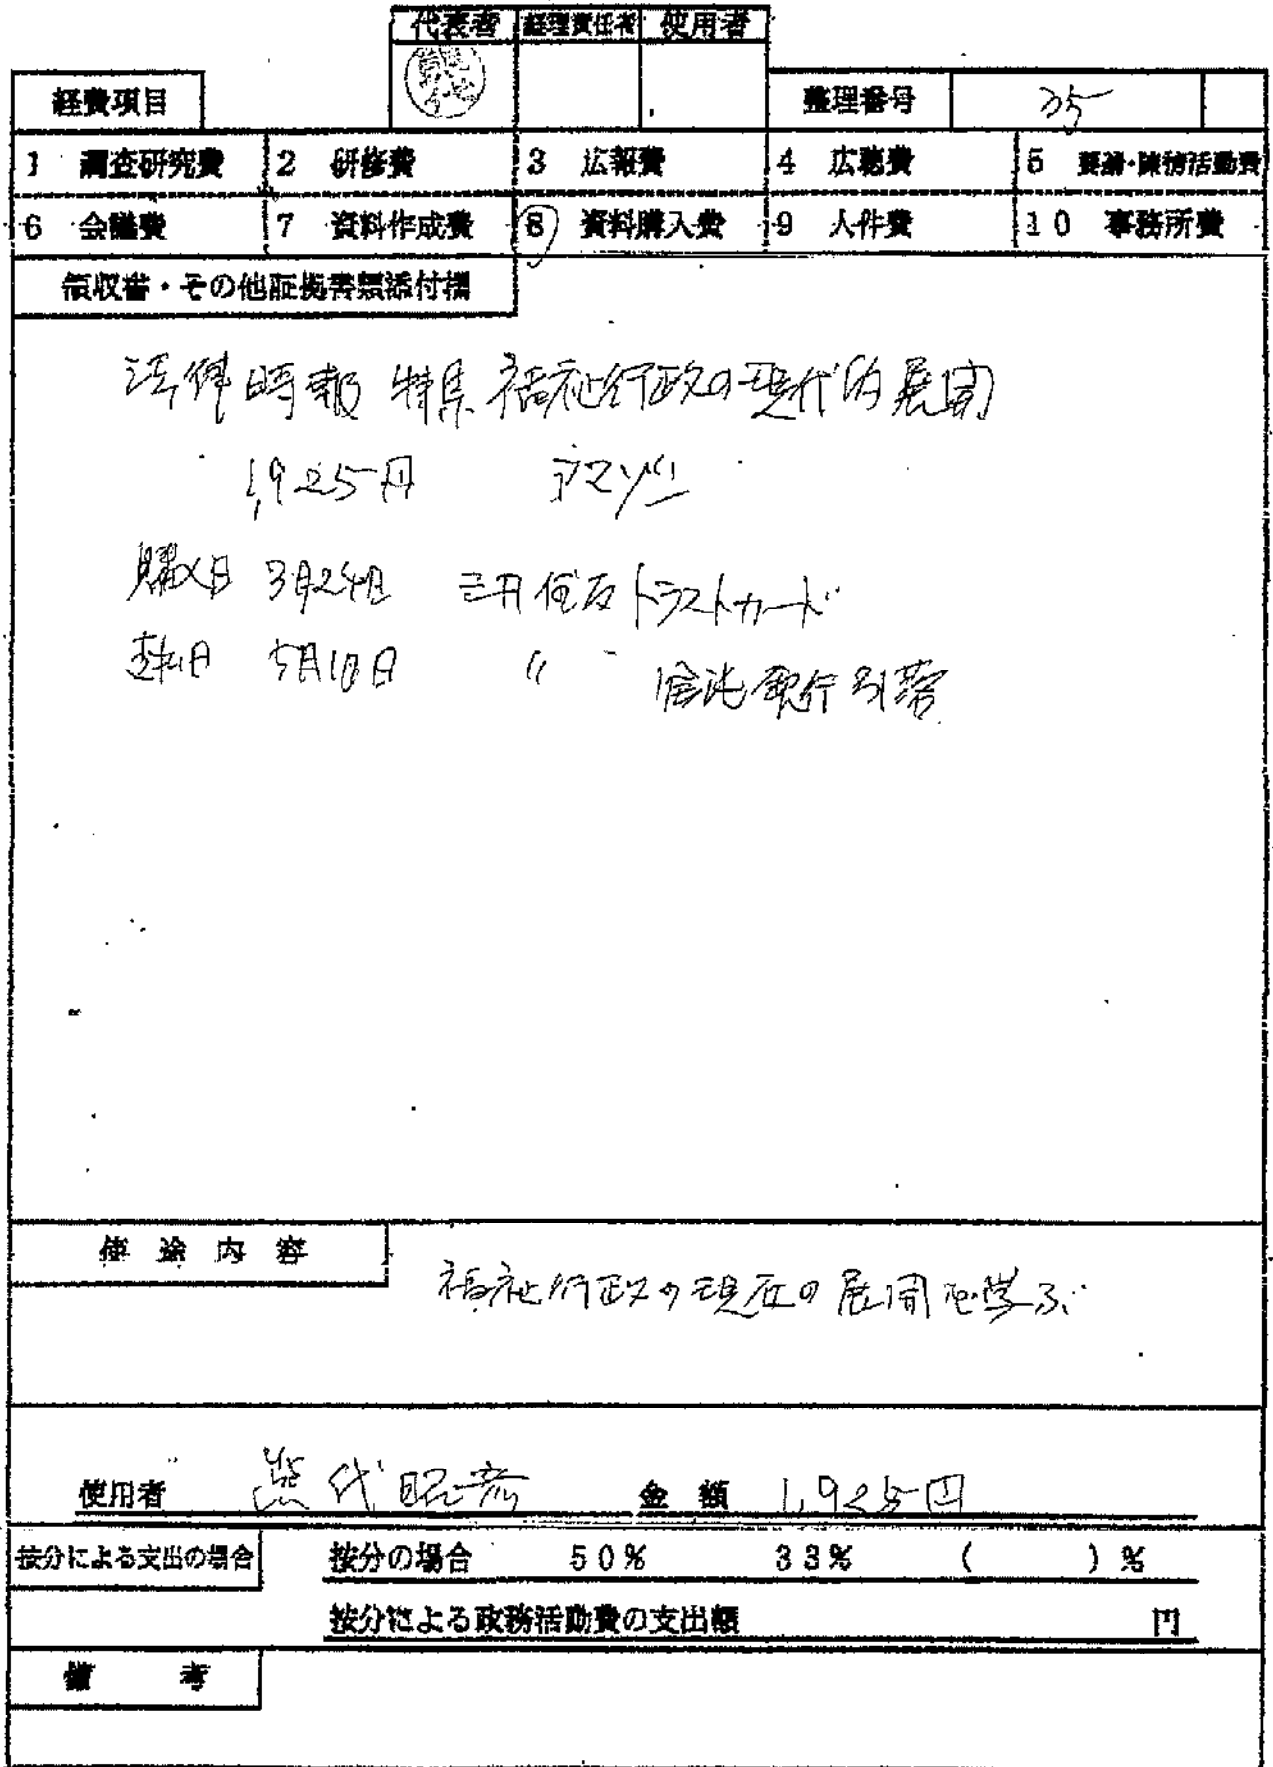 代表者 経理責任者 使用者
経費項目
整理番号 35
1 調査研究費 2 研修費 3 広報費 4 広聴費 5 要請・陳情活動費
6 会議費 7 資料作成費 8 資料購入費 9 人件費 10 事務所費
領収書・その他証拠書類添付欄
法律時報 特集 福祉行政の現代的展開
1,925円 アマゾン
購入日 3月24日 三井住友トラストカード
支払日 5月10日 〃 信託銀行引落
使途内容
福祉行政の現在の展開を学ぶ
使用者 熊代昭彦 金額 1,925円
按分による支出の場合 按分の場合 50% 33% ( )%
按分による政務活動費の支出額 円
備考